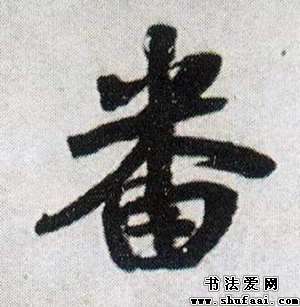 番
书法爱网
www.shufaai.com